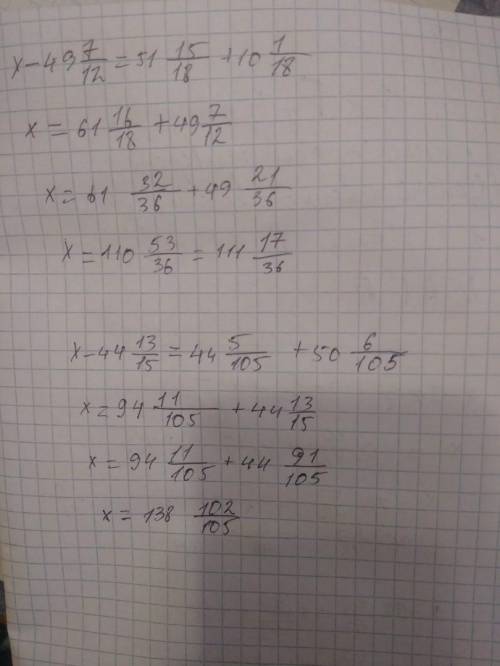 x - 49 7/12 = 51 15/18 + 10 1/18
x = 61 16/18 + 49 7/12
x = 61 32/36 + 49 21/36
x = 110 53/36 = 111 17/36
x - 44 13/15 = 44 5/105 + 50 6/105
x = 94 11/105 + 44 13/15
x = 94 11/105 + 44 91/105
x = 138 102/105